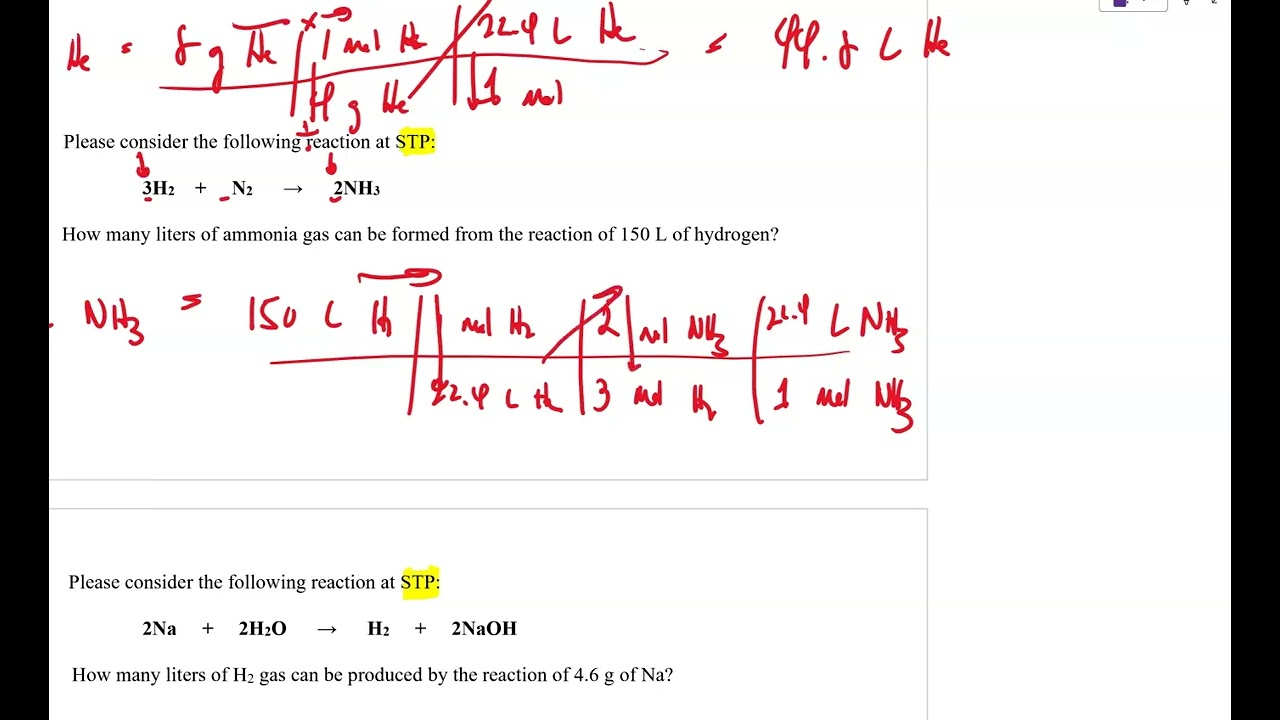 He = 8 g He 1 mol He 22.4 L He = 44.8 L He
4 g He 1 mol
Please consider the following reaction at STP:
3H₂ + _N₂ → 2NH₃
How many liters of ammonia gas can be formed from the reaction of 150 L of hydrogen?
NH₃ = 150 L H₂ 1 mol H₂ 2 mol NH₃ 22.4 L NH₃
22.4 L H₂ 3 mol H₂ 1 mol NH₃
Please consider the following reaction at STP:
2Na + 2H₂O → H₂ + 2NaOH
How many liters of H₂ gas can be produced by the reaction of 4.6 g of Na?